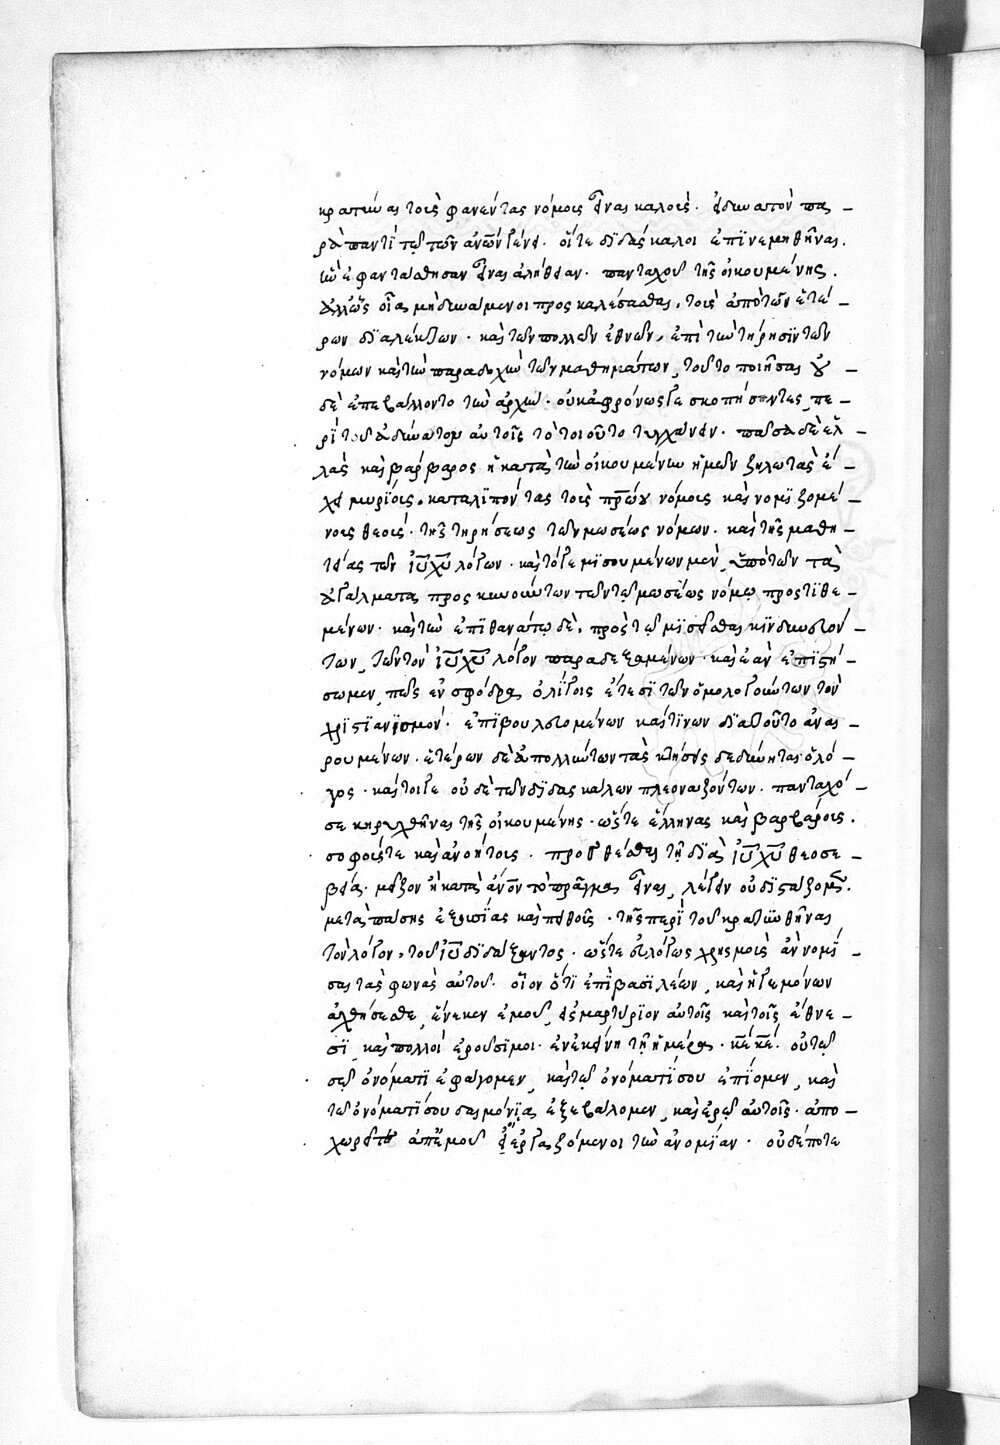 κρατύνας τοὺς φανέντας νόμους εἶναι καλοὺς. ἀδύνατον πα-
ρὰ παντὶ τῷ τῶν ἀνῶν γένει. οὔτε διδάσκαλοι ἐπινεμηθῆναι.
ὧν ἐφαντάσθησαν εἶναι ἀλήθειαν. πανταχοῦ τῆς οἰκουμένης.
ἀλλ' ὡς μὴ δυνάμενοι προσκαλέσασθαι, τοὺς ἀπὸ τῶν ἑτέ-
ρων διαλέκτων. καὶ τῶν πολλῶν ἐθνῶν, ἐπὶ τὴν τήρησιν τῶν
νόμων καὶ τὴν παραδοχὴν τῶν μαθημάτων, τοῦτο ποιῆσαι οὐ-
δὲ ἐπεβάλλοντο τὴν ἀρχὴν. οὐκ ἀφρόνως γε σκοπήσαντες, πε-
ρὶ τοῦ ἀδύνατον αὐτοῖς τὸ τοιοῦτο τυγχάνειν. πᾶσα δὲ ἑλ-
λὰς καὶ βάρβαρος ἡ κατὰ τὴν οἰκουμένην ἡμῶν ζηλωτὰς ἔ-
χει μυρίους. καταλιπόντας τοὺς πρώους νόμους καὶ νομιζομέ-
νους θεοὺς. τῆς τηρήσεως τῶν μωσέως νόμων. καὶ τῆς μαθη-
τείας τῶν ἰῦ χῦ λόγων. καίτοιγε μισουμένων μὲν, ὑπὸ τῶν τὰ
ἀγάλματα προσκυνούντων τῶν τῷ μωσέως νόμῳ προστιθε-
μένων. καὶ τὴν ἐπὶ θανάτῳ δὲ, πρὸς τῷ μισεῖσθαι κινδυνευόν-
των, τῶν τὸν ἰῦ χῦ λόγον παραδεξαμένων. καὶ ἐὰν ἐπιστή-
σωμεν, πῶς ἐν σφόδρα ὀλίγοις ἔτεσι τῶν ὁμολογούντων τὸν
χριστιανισμὸν. ἐπιβουλευομένων καί τινων διὰ τοῦτο ἀναι-
ρουμένων. ἑτέρων δὲ ἀπολλύντων τὰς κτήσεις δεδύνηται ὁ λό-
γος. καίτοιγε οὐδὲ τῶν διδασκάλων πλεοναζόντων. πανταχό-
σε κηρυχθῆναι τῆς οἰκουμένης. ὥστε ἕλληνας καὶ βαρβάρους.
σοφούς τε καὶ ἀνοήτους. προσθέσθαι τῇ διὰ ἰῦ χῦ θεοσε-
βείᾳ. μεῖζον ἢ κατὰ ἄνον τὸ πρᾶγμα εἶναι, λέγειν οὐ διστάξομεν.
μετὰ πάσης ἐξουσίας καὶ πειθοῦς. τῆς περὶ τοῦ κρατυνθῆναι
τὸν λόγον, τοῦ ἰῦ διδάξαντος. ὥστε εὐλόγως χρησμοὺς ἂν νομί-
σαι τὰς φωνὰς αὐτοῦ. οἷον ὅτι ἐπὶ βασιλέων, καὶ ἡγεμόνων
ἀχθήσεσθε, ἕνεκεν ἐμοῦ, εἰς μαρτύριον αὐτοῖς καὶ τοῖς ἔθνε-
σι, καὶ πολλοὶ ἐροῦσί μοι. ἐν ἐκείνῃ τῇ ἡμέρᾳ. κε κε. οὐ τῷ
σῷ ὀνόματι ἐφάγομεν, καὶ τῷ ὀνόματί σου ἐπίομεν, καὶ
τῷ ὀνόματί σου δαιμόνια ἐξεβάλομεν, καὶ ἐρῶ αὐτοῖς. ἀπο-
χωρεῖτε ἀπ' ἐμοῦ οἱ ἐργαζόμενοι τὴν ἀνομίαν. οὐδέποτε